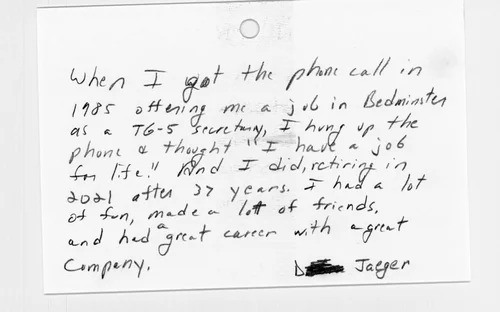 When I got the phone call in
1985 offering me a job in Bedminster
as a TG-5 secretary, I hung up the
phone & thought "I have a job
for life!" And I did, retiring in
2021 after 37 years. I had a lot
of fun, made a lot of friends,
and had a great career with a great
Company.
D Jaeger